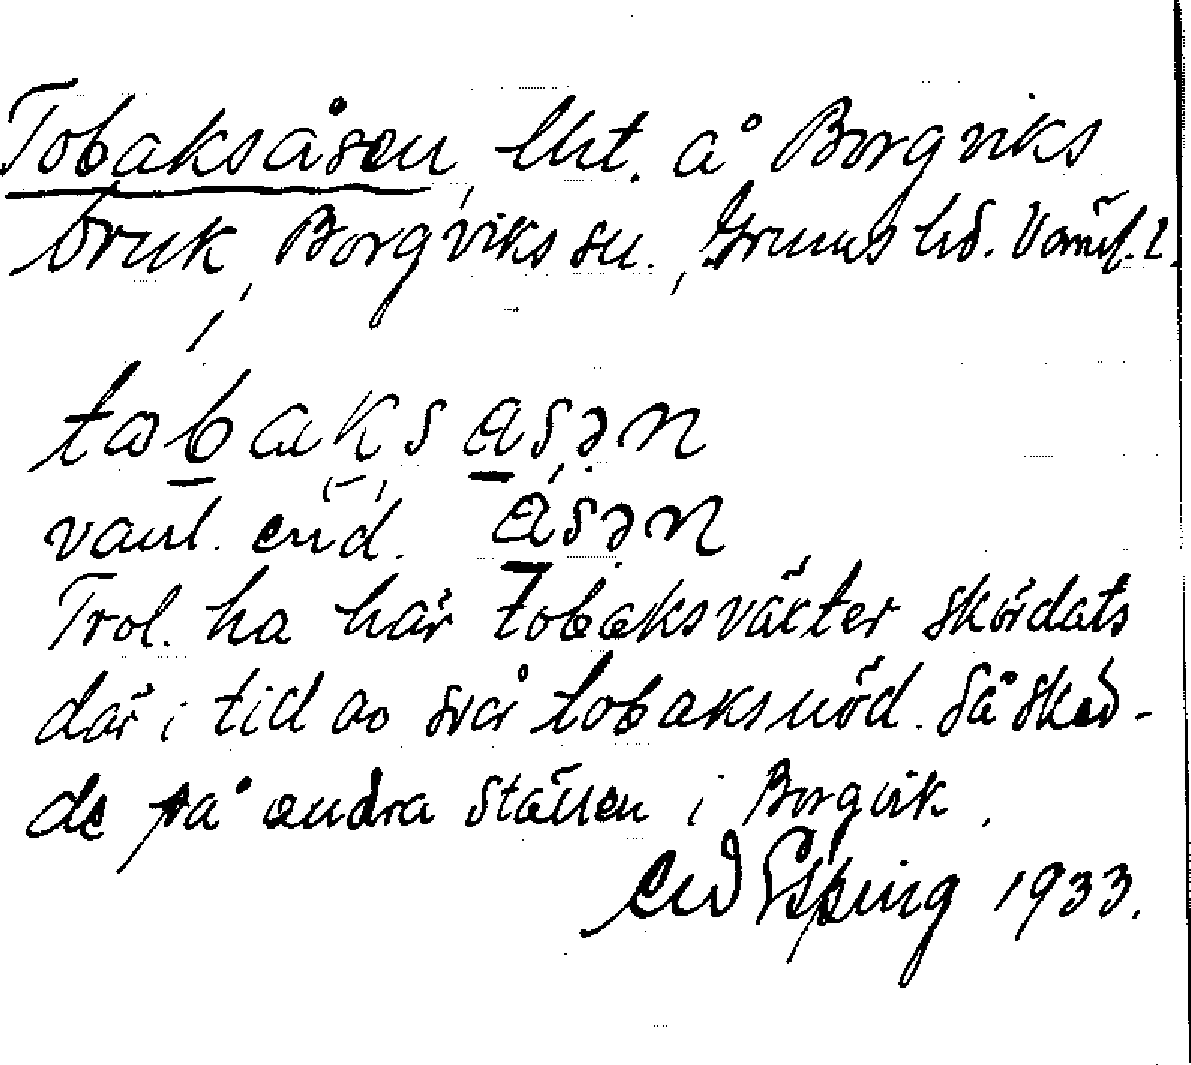 Tobaksåsen, lht. å Borgviks
bruk, Borgviks sn., Grums hd. Värml. l.
tobaksasən
vanl. end. asən
Trol. ha här tobaksväxter skördats
där i tid av svår tobaksnöd. Så sked-
de på andra ställen i Borgvik.
Esping 1933.